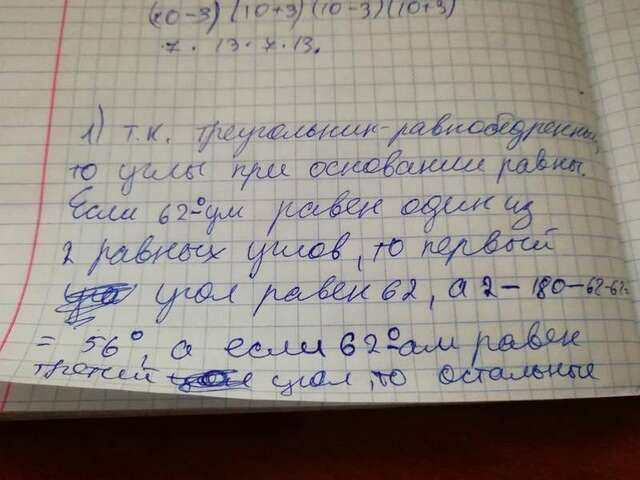 (10-3)(10+3)(10-3)(10+3)
7 · 13 · 7 · 13.
1) т.к. треугольник-равнобедренный,
то углы при основании равны.
Если 62°-ум равен один из
2 равных углов, то первый
угол равен 62, а 2 - 180-62-62=
= 56°, а если 62°-ам равен
третий угол, то остальные